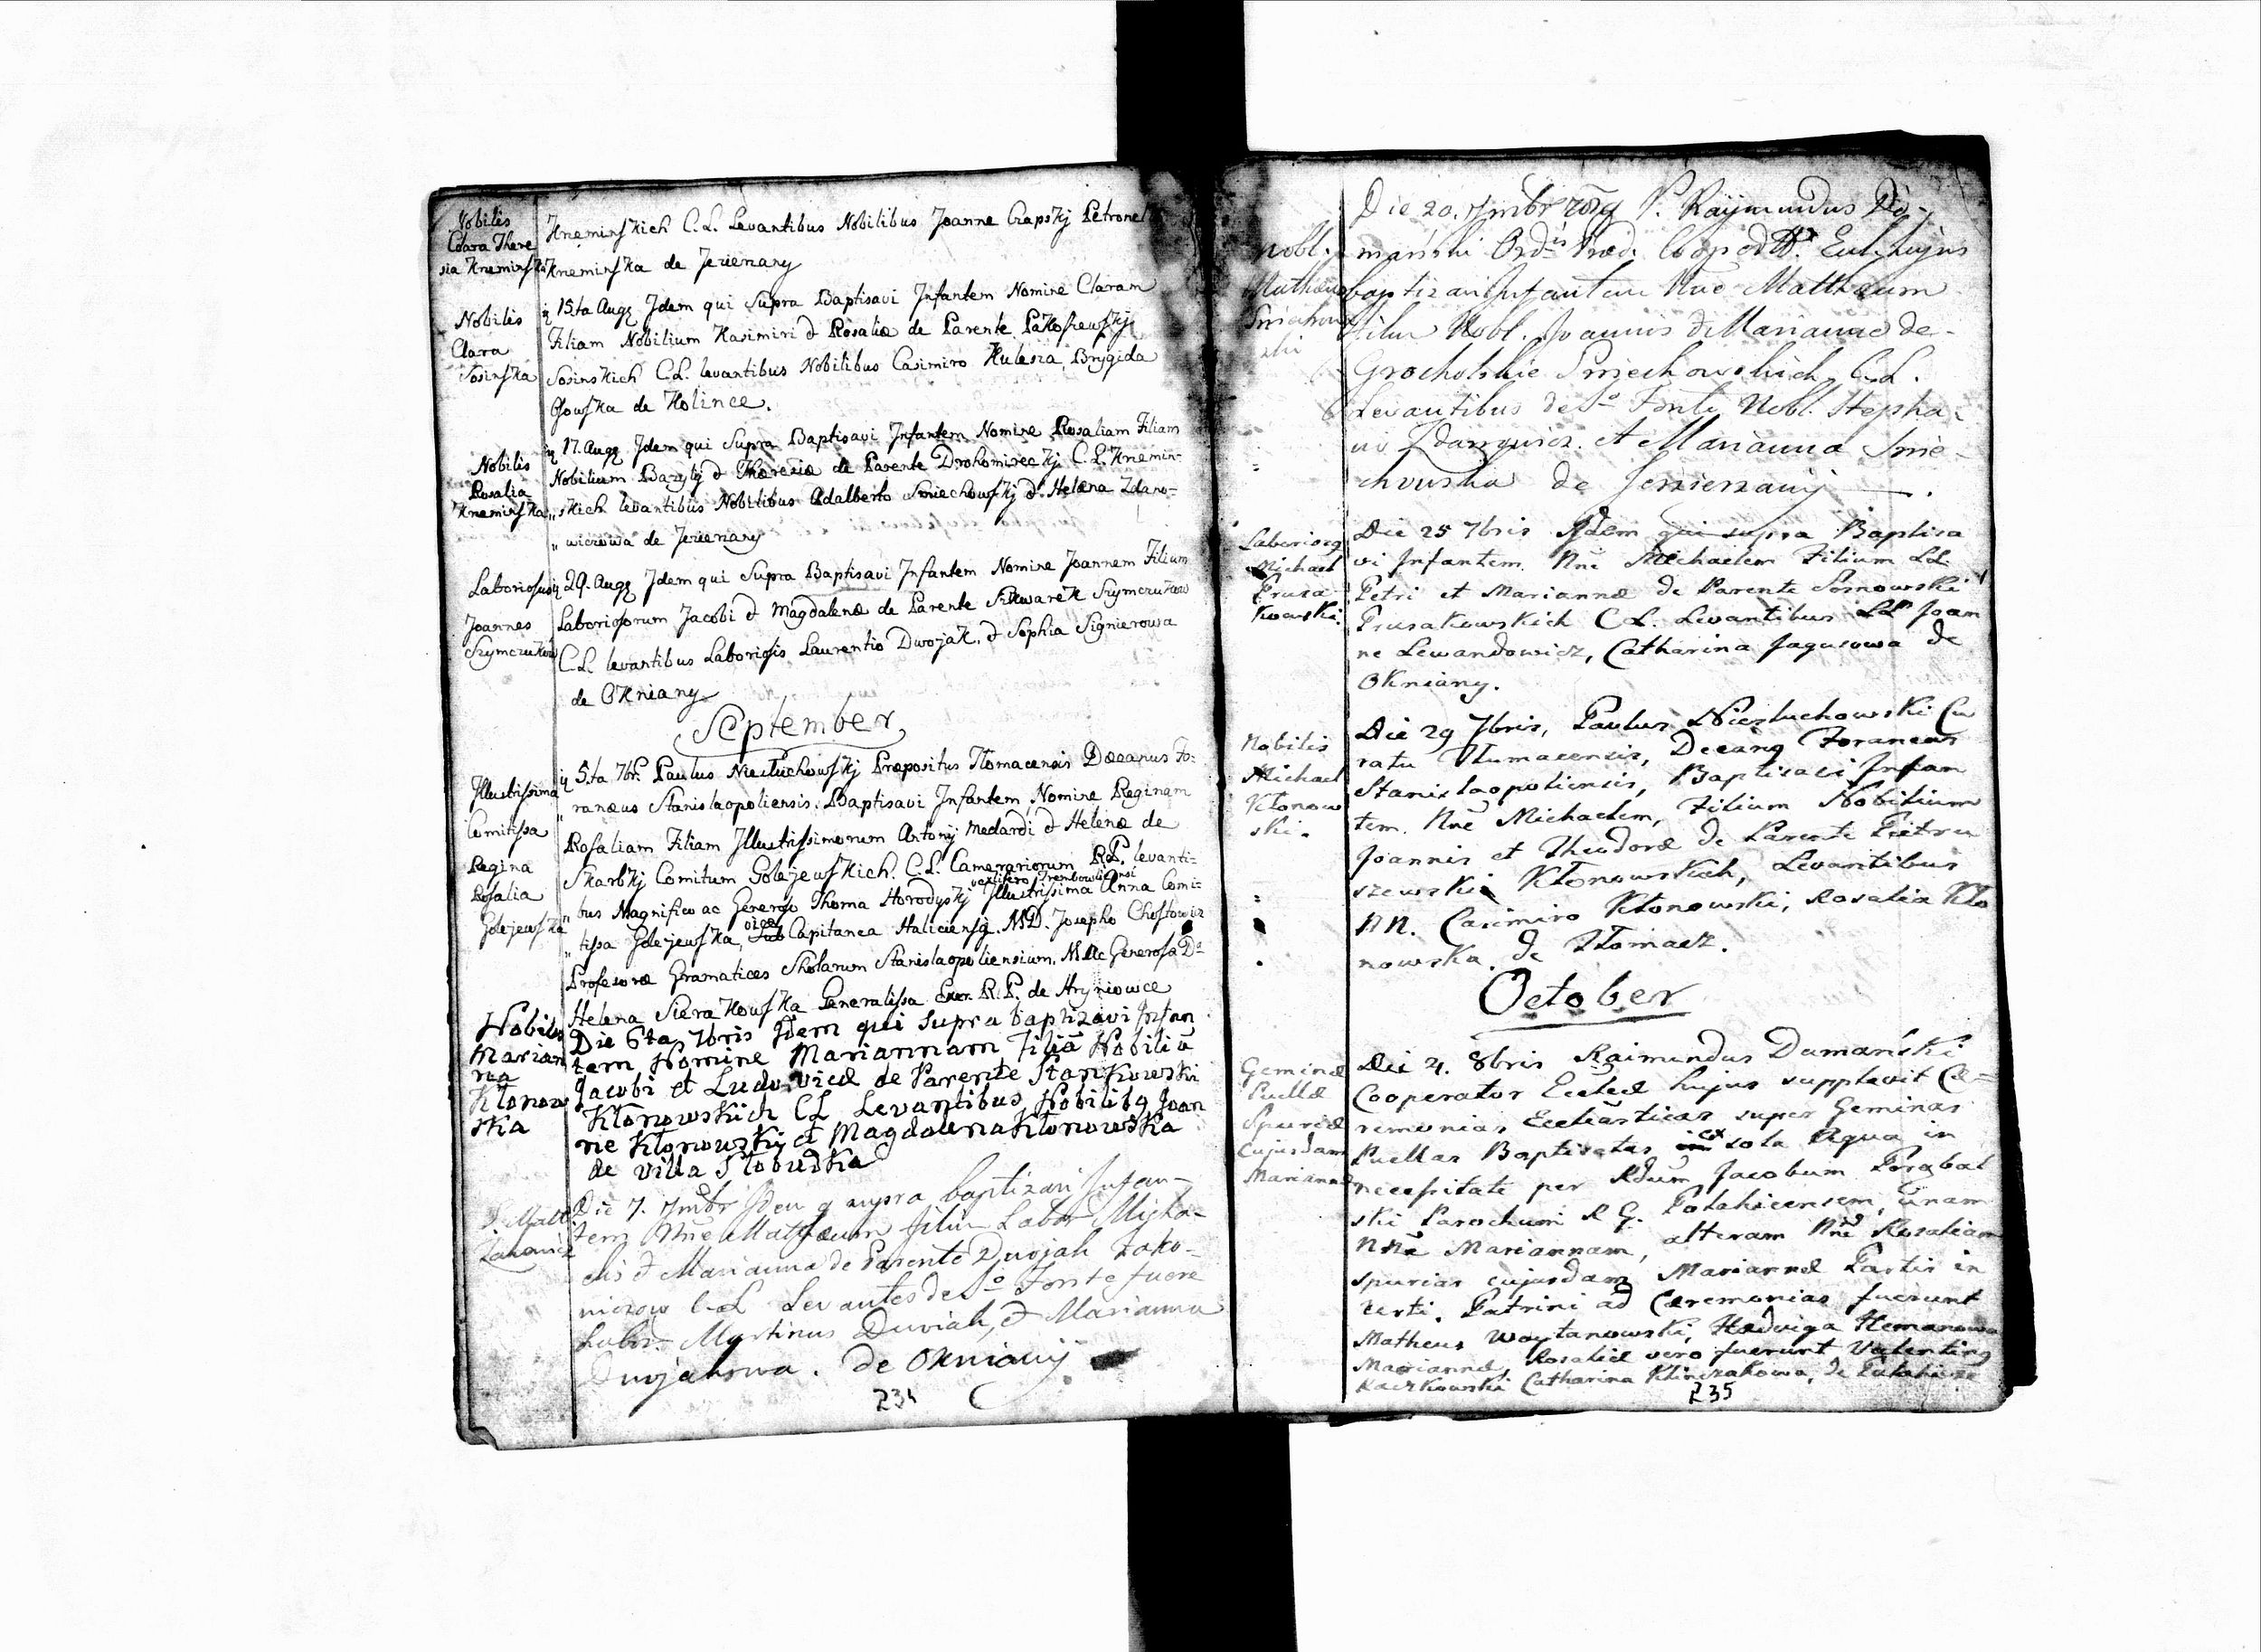 Nobilis
Clara There
sia Kneminska
Kneminskich C. L. Levantibus Nobilibus Joanne Czapskj Petronel
Kneminska de Jezierzany
Nobilis
Clara
Sosinska
15ta Augq Jdem qui Supra Baptisavi Jnfantem Nomine Claram
Filiam Nobilium Kasimiri & Rosaliæ de Parente Pakoszewskj
Sosinskich C.L. levantibus Nobilibus Casimiro Kulesza, Brygida
Osowska de Kolince.
Nobilis
Rosalia
Kneminska
17. Augq Jdem qui Supra Baptisavi Jnfantem Nomine Rosaliam Filiam
Nobilium Bazylij & Theresiæ de Parente Drohomireckj C.L. Knemin-
skich levantibus Nobilibus Adalberto Smiechowskj & Helena Zdano-
wiczowa de Jezierzany
Laboriosus
Joannes
Szymczukow
29. Augq Jdem qui Supra Baptisavi Jnfantem Nomine Joannem Filium
Laboriosorum Jacobi & Magdalenæ de Parente Skwarek Szymczukow
C.L. levantibus Laboriosis Laurentio Dwojak, & Sophia Signierowa
de Okniany
September
Illustrissima
Comitissa
Regina
Rosalia
Golejewska
5.ta 7br. Paulus Niezluchowskj Præpositus Tłomacensis Decanus Fo-
raneus Stanislaopoliensis. Baptisavi Jnfantem Nomine Reginam
Rosaliam Filiam Jllustrissimorum Antonij Medardi & Helenæ de
Skarbkj Comitum Golejewskich. C.L. Camerariorum R.P. levanti-
vexilifero Trembowliensi
bus Magnifico ac Generoso Thoma Horodyskj Jllustrissima Anna Comi-
tissa Golejewska, Sub Capitanea Haliciensi. MD. Josepho Chostowiz
Profesore Gramatices Scholarum Stanislaopoliensium. Ac Generosa D.
Helena Sierakowska Generalissa R.P. de Hryniowce
Nobilis
Marian
na
Kłonow
ska
Die 6ta 7bris Jdem qui supra baptizavi Jnfan
tem Nomine Mariannam, filiā Nobiliū
Jacobi et Ludovicæ de Parente Stankowski
Kłonowskich CL Levantibus Nobilibq Joan
ne Kłonowskj et Magdalena Kłonowska
de villa Słobudka
Die 7. 7mbr Jdem q supra baptizavi Jnfan-
tem Nne Mathæum filiu Labor Micha-
elis & Marianna de Parente Dwojak Zako-
nicrow C.L Levantes de So Fonte fuere
Labor. Martinus Dwojak, & Marianna
Dwojakowa. de Okniany
234
Nobl.
Mathæus
Smiechow
ski
Die 20. 7mbr P. Raymundus Do-
mański Ordis Præd. Cooper Eccl. hujus
baptizavi Jnfantem Nne Matthæum
filiu Nobl. Joannis & Mariannæ de
Grocholskie Smiechowskich C.L.
Levantibus de So Fonte Nobl. Stepha-
no Zdanowicz et Marianna Smie-
chowska de Jezierzany
Laboriosq
Michael
Prusa-
kowski.
Die 25 7bris Jdem qui supra Baptisa
vi Jnfantem Nne Michaelem Filium LL
Petri et Mariannæ de Parente Sosnowski
Prusakowskich C L. Levantibus LL Joan
ne Lewandowicz, Catharina Jagusowa de
Okniany.
Nobilis
Michael
Kłonow
ski.
Die 29 7bris, Paulus Niezluchowski Cu
ratu Tłumacensis, Decanq Foraneus
Stanislaopoliensis, Baptisavi Jnfan
tem. Nne Michaelem, Filium Nobilium
Joannis et Theodoræ de Parente Pietru
szewski Kłonowskich, Levantibus
NN. Casimiro Kłonowski, Rosalia Kło
nowska. de Tłomacz.
October
Geminæ
Puellæ
Spuriæ
Cujusdam
Mariannæ
Die 4. 8bris Raimundus Damański
Cooperator Eccleæ hujus supplevit Cæ-
remonias Eccleasticas super Geminas
Puellas Baptisatas ex sola Aqua in
necessitate per Rdum Jacobum Porabal
ski Parochum R G. Palahicensem, unam
Nne Mariannam, alteram Nne Rosaliam
spurias cujusdam Mariannæ Patris in
certi. Patrini ad Ceremonias fuerunt
Matheus Woytanowski, Hedviga Hemanowa
Mariannæ, Rosaliæ vero fuerunt Valentinq
Kaczkowski Catharina Klimczakowa, de Palahicze
235